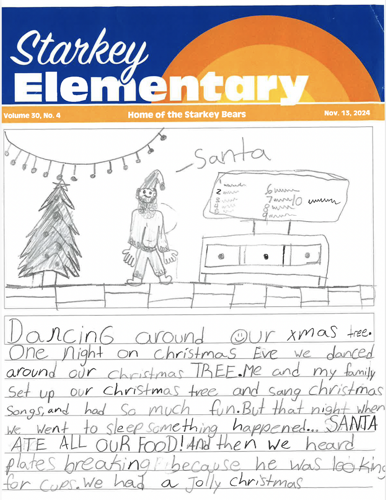 Starkey
Elementary
Volume 30, No. 4 Home of the Starkey Bears Nov. 13, 2024
Santa
1
2
3
4
5
6
7
8
9
10
Dancing around our xmas tree.
One night on christmas Eve we danced
around our christmas TREE. Me and my family
set up our christmas tree and sang christmas
songs, and had so much fun. But that night when
we went to sleep something happened... SANTA
ATE ALL OUR FOOD! And then we heard
plates breaking because he was looking
for cups. We had a jolly christmas